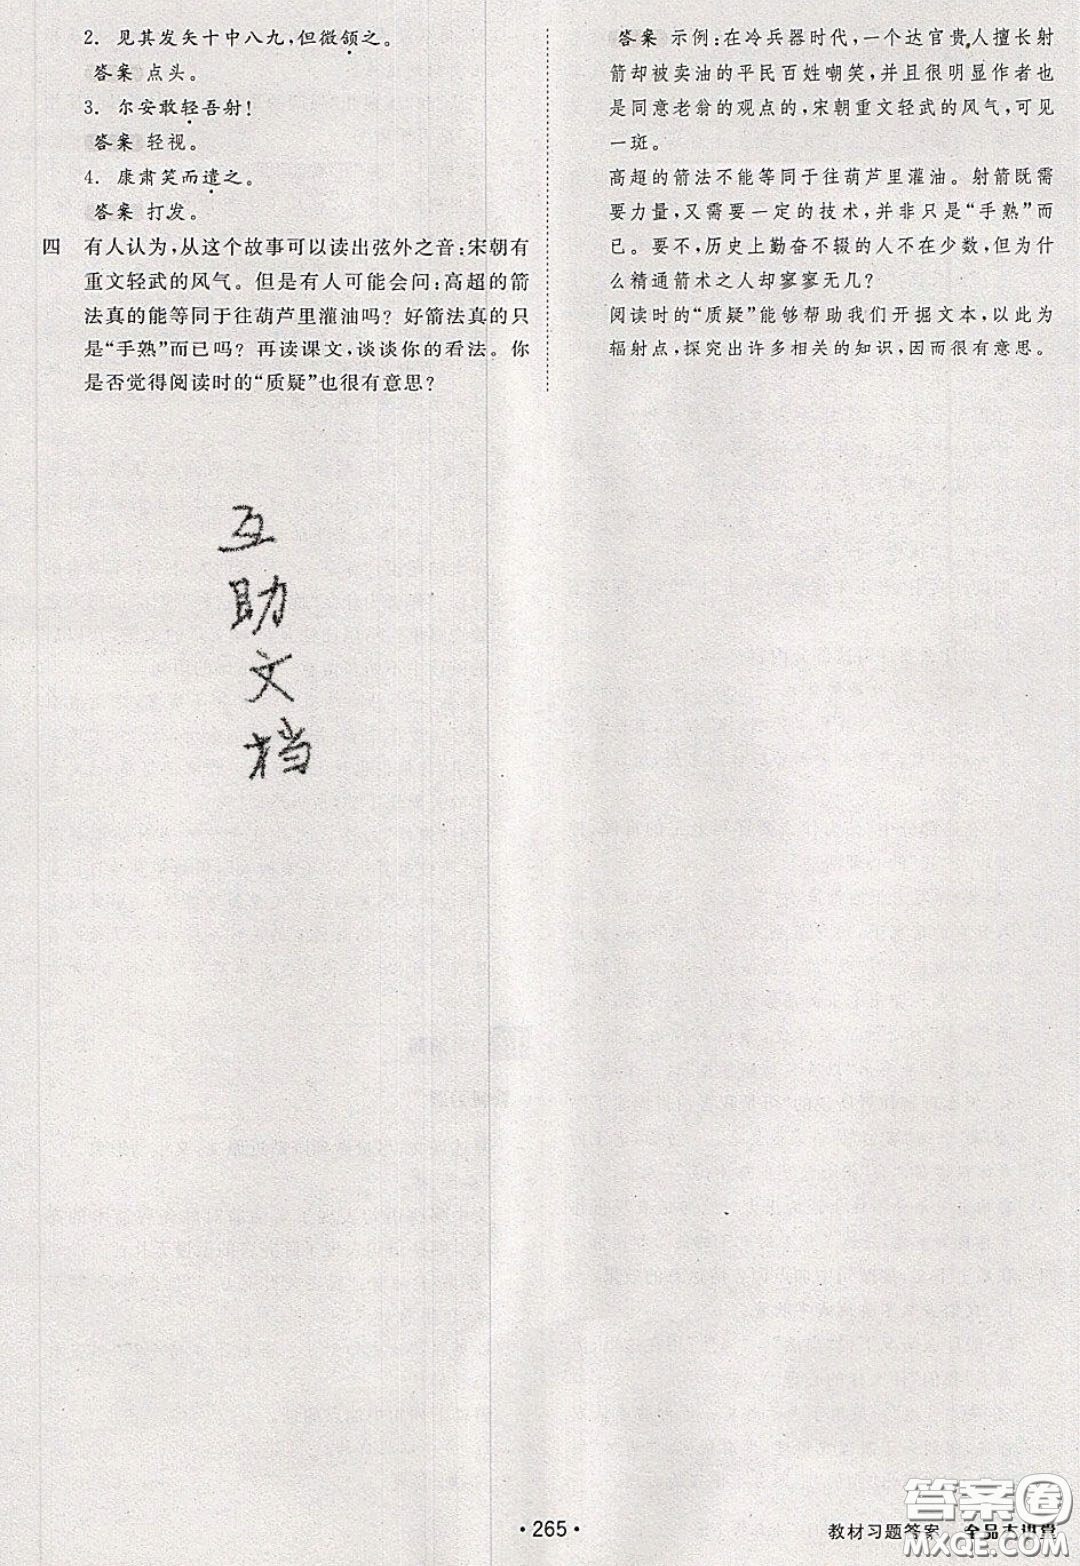 2. 见其发矢十中八九,但微颔之。
答案 点头。
3. 尔安敢轻吾射!
答案 轻视。
4. 康肃笑而遣之。
答案 打发。
四 有人认为,从这个故事可以读出弦外之音:宋朝有
重文轻武的风气。但是有人可能会问:高超的箭
法真的能等同于往葫芦里灌油吗? 好箭法真的只
是“手熟”而已吗? 再读课文,谈谈你的看法。你
是否觉得阅读时的“质疑”也很有意思?
答案 示例:在冷兵器时代,一个达官贵人擅长射
箭却被卖油的平民百姓嘲笑,并且很明显作者也
是同意老翁的观点的,宋朝重文轻武的风气,可见
一斑。
高超的箭法不能等同于往葫芦里灌油。射箭既需
要力量,又需要一定的技术,并非只是“手熟”而
已。要不,历史上勤奋不辍的人不在少数,但为什
么精通箭术之人却寥寥无几?
阅读时的“质疑”能够帮助我们开掘文本,以此为
辐射点,探究出许多相关的知识,因而很有意思。
互
助
文
档
·265·
教材习题答案 全品大讲堂
答案圈
MXQE.COM